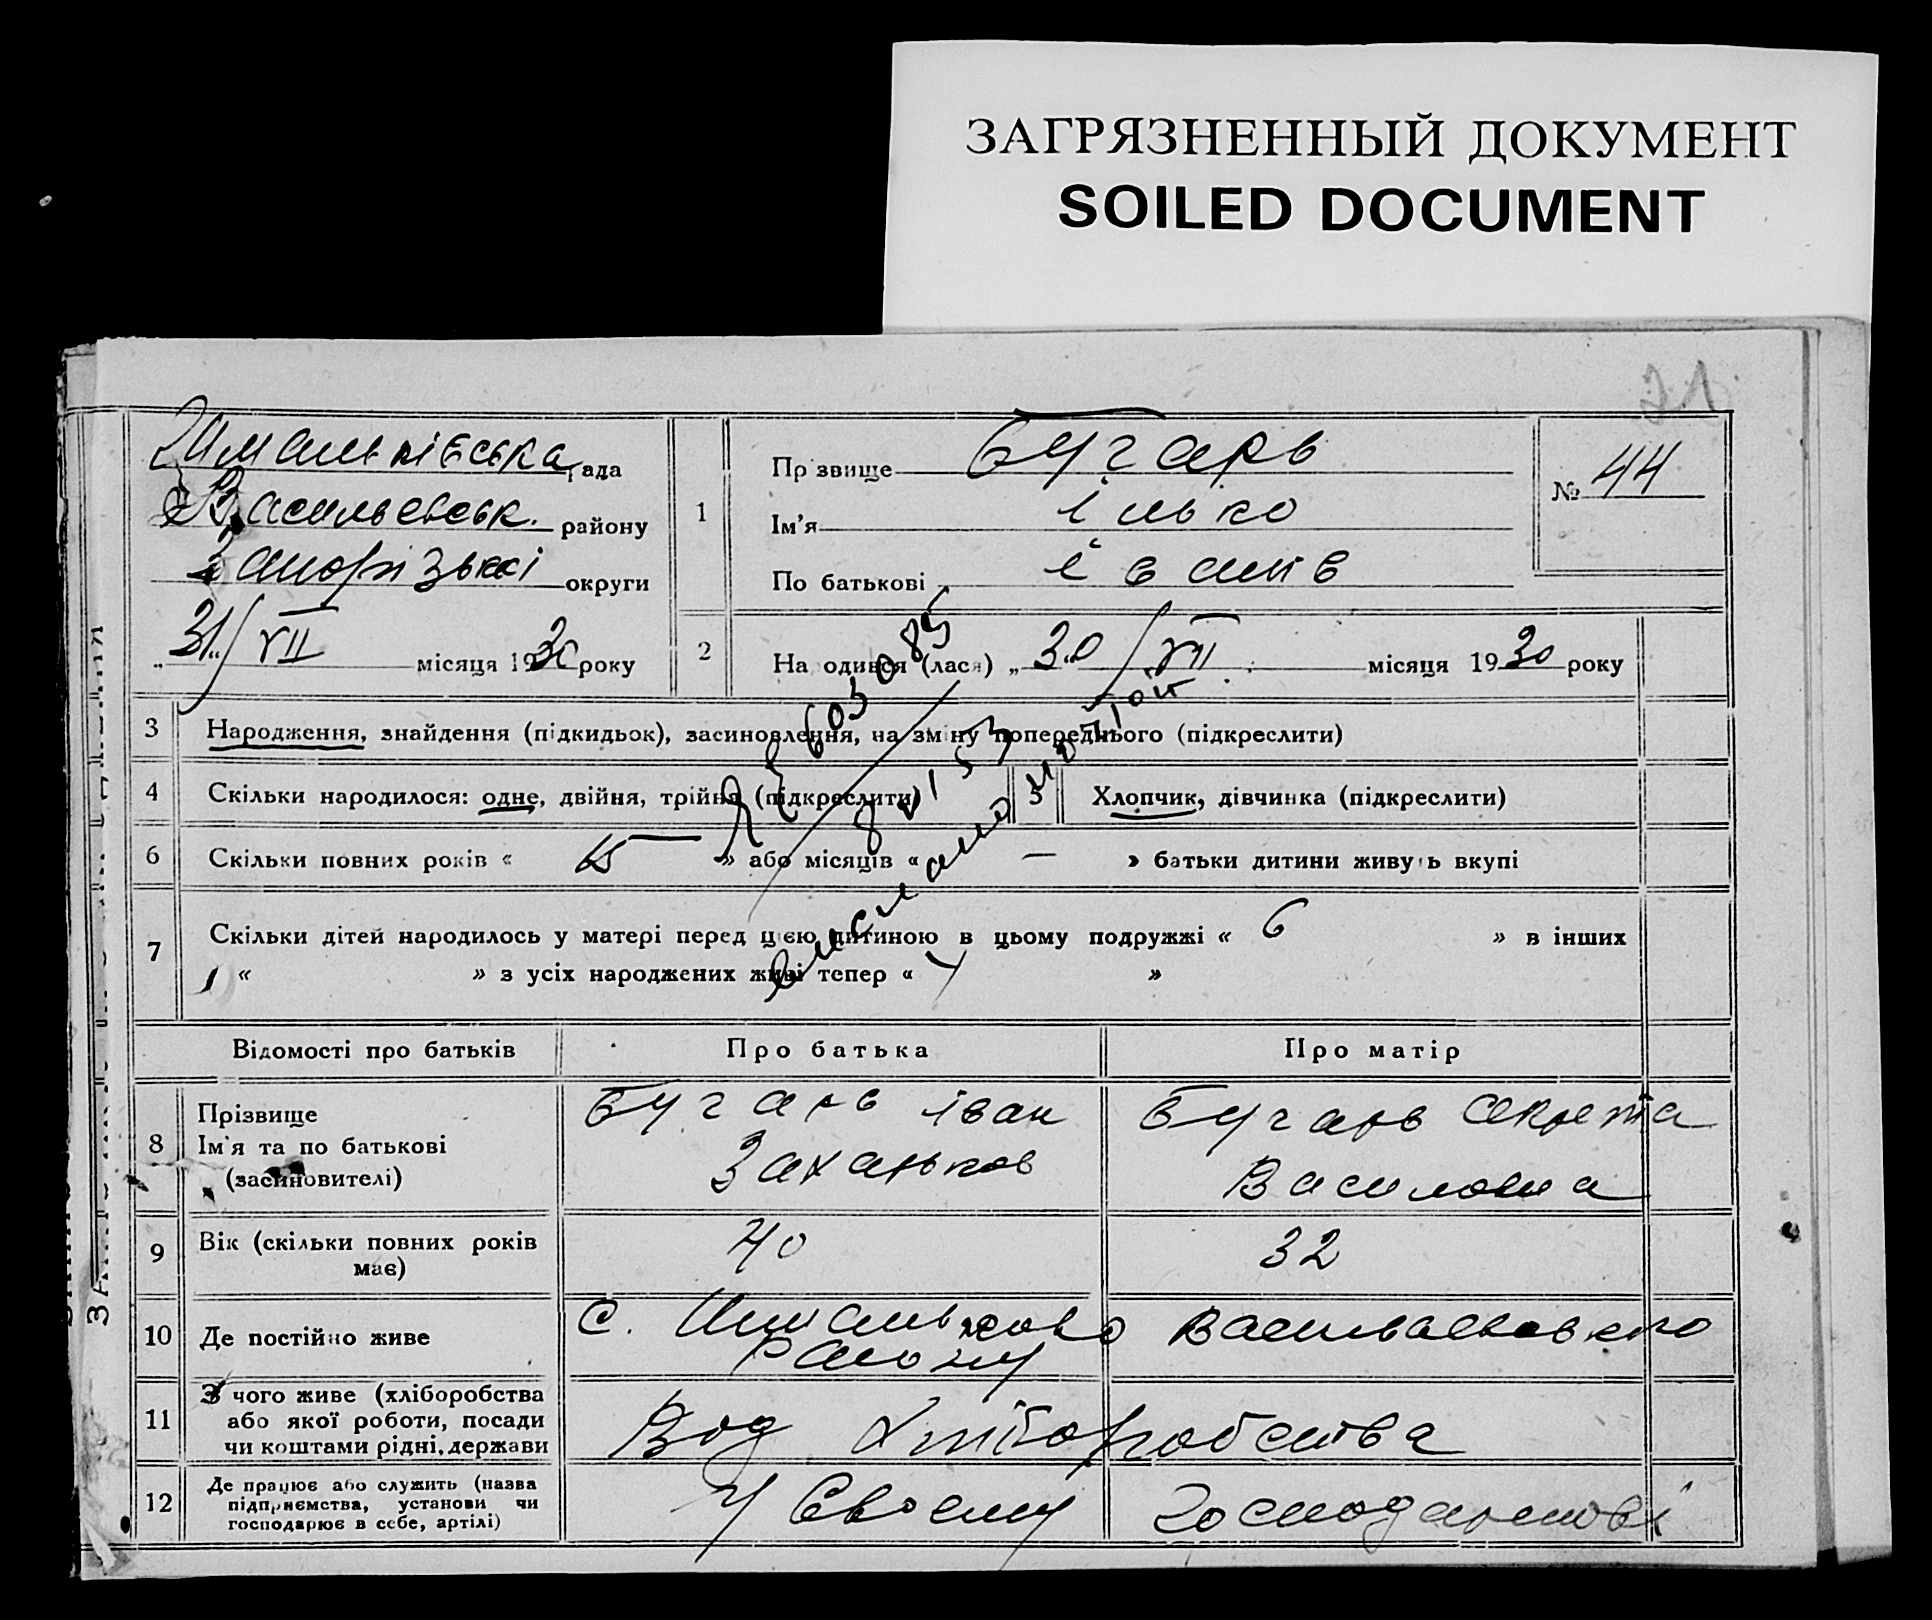 ЗАГРЯЗНЕННЫЙ ДОКУМЕНТ
SOILED DOCUMENT
рада
Васильевськ. району
Запорізької округи
31/VII місяця 1930 року
1
Прізвище Бугарь
Ім'я Ілько
По батькові Іванів
№ 44
2
Народився (лася) „30/VII місяця 1930 року
3 Народження, знайдення (підкидьок), засиновлення, на зміну попереднього (підкреслити)
4 Скільки народилося: одне, двійня, трійня (підкреслити)
5 Хлопчик, дівчинка (підкреслити)
6 Скільки повних років « 15 » або місяців « — » батьки дитини живуть вкупі
7 Скільки дітей народилось у матері перед цією дитиною в цьому подружжі « 6 » в інших
« » з усіх народжених живі тепер « »
ЯЕ 603085
8 VI 53
Відомості про батьків Про батька Про матір
8 Прізвище
Ім'я та по батькові
(засиновителі)
Бугарь Іван
Захарьков
Бугарь
Василовна
9 Вік (скільки повних років
має)
40 32
10 Де постійно живе
с.
району
11 З чого живе (хліборобства
або якої роботи, посади
чи коштами рідні, держави
Вод хліборобства
12 Де працює або служить (назва
підприємства, установи чи
господарює в себе, артілі)
У Своему господарстві